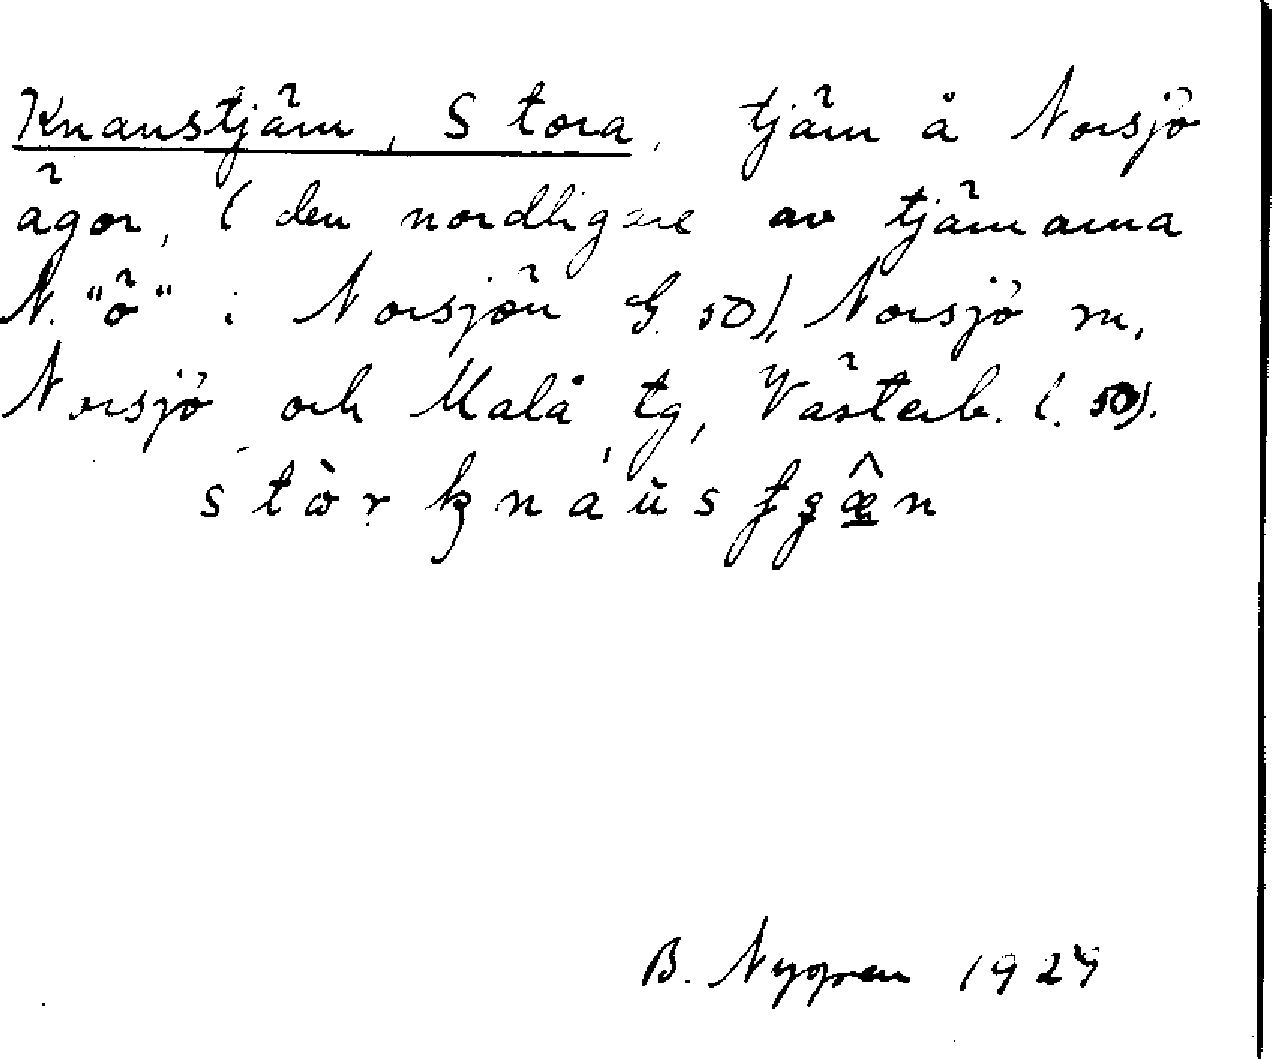 Knaustjärn, Stora, tjärn å Norsjö
ägor, (den nordligare av tjärnarna
N. "ö" i Norsjön G. 50), Norsjö sn,
Norsjö och Malå tg, Västerb. l. 50).
B. Nygren 1927